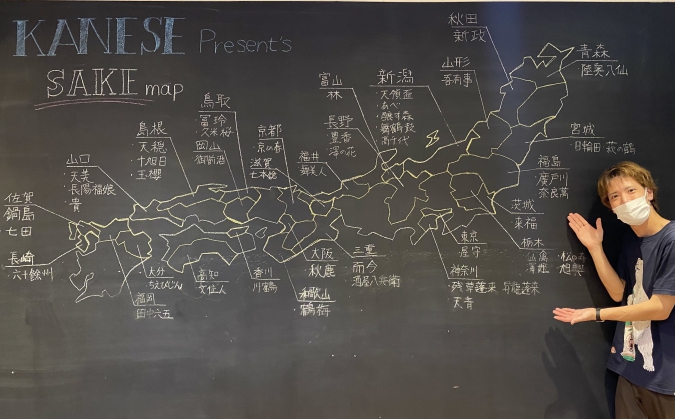 KANESE Present's
SAKE map
佐賀
鍋島
七田
長崎
六十餘洲
山口
天美
長陽福娘
貴
大分
ちえびじん
福岡
田中六五
島根
天穏
十旭日
玉櫻
鳥取
冨玲
久米桜
岡山
御前酒
高知
文佳人
香川
川鶴
京都
京の春
滋賀
七本鎗
大阪
秋鹿
和歌山
鶴梅
福井
舞美人
三重
而今
酒屋八兵衛
富山
林
長野
豊香
澤の花
新潟
天領盃
あべ
醸す森
舞鶴鼓
高千代
山形
吾有事
秋田
新政
青森
陸奥八仙
宮城
日輪田 萩の鶴
福島
廣戸川
奈良萬
茨城
来福
栃木
仙禽
旭興
東京
屋守
神奈川
残草蓬莱 昇龍蓬莱
天青